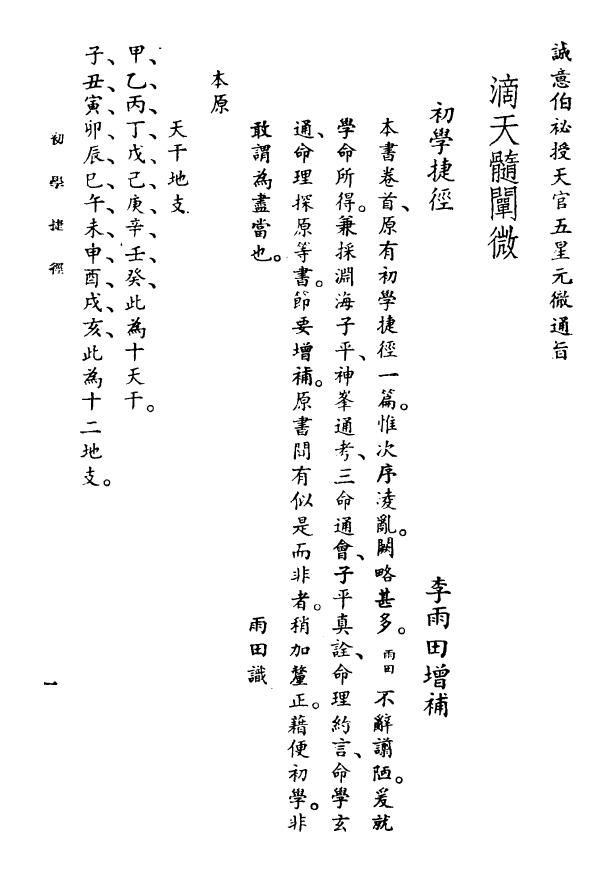 誠意伯祕授天官五星元徽通旨
滴天髓闡微
初學捷徑
李雨田增補
本書卷首、原有初學捷徑一篇。惟次序凌亂。闕略甚多。雨田不辭譾陋。爰就
學命所得。兼採淵海子平、神峯通考、三命通會、子平真詮、命理約言、命學玄
通、命理探原等書。節要增補。原書間有似是而非者。稍加釐正。藉便初學。非
敢謂為盡當也。
雨田識
本原
天干地支
甲、乙、丙、丁、戊、己、庚、辛、壬、癸、此為十天干。
子、丑、寅、卯、辰、巳、午、未、申、酉、戌、亥、此為十二地支。
初學捷徑
一